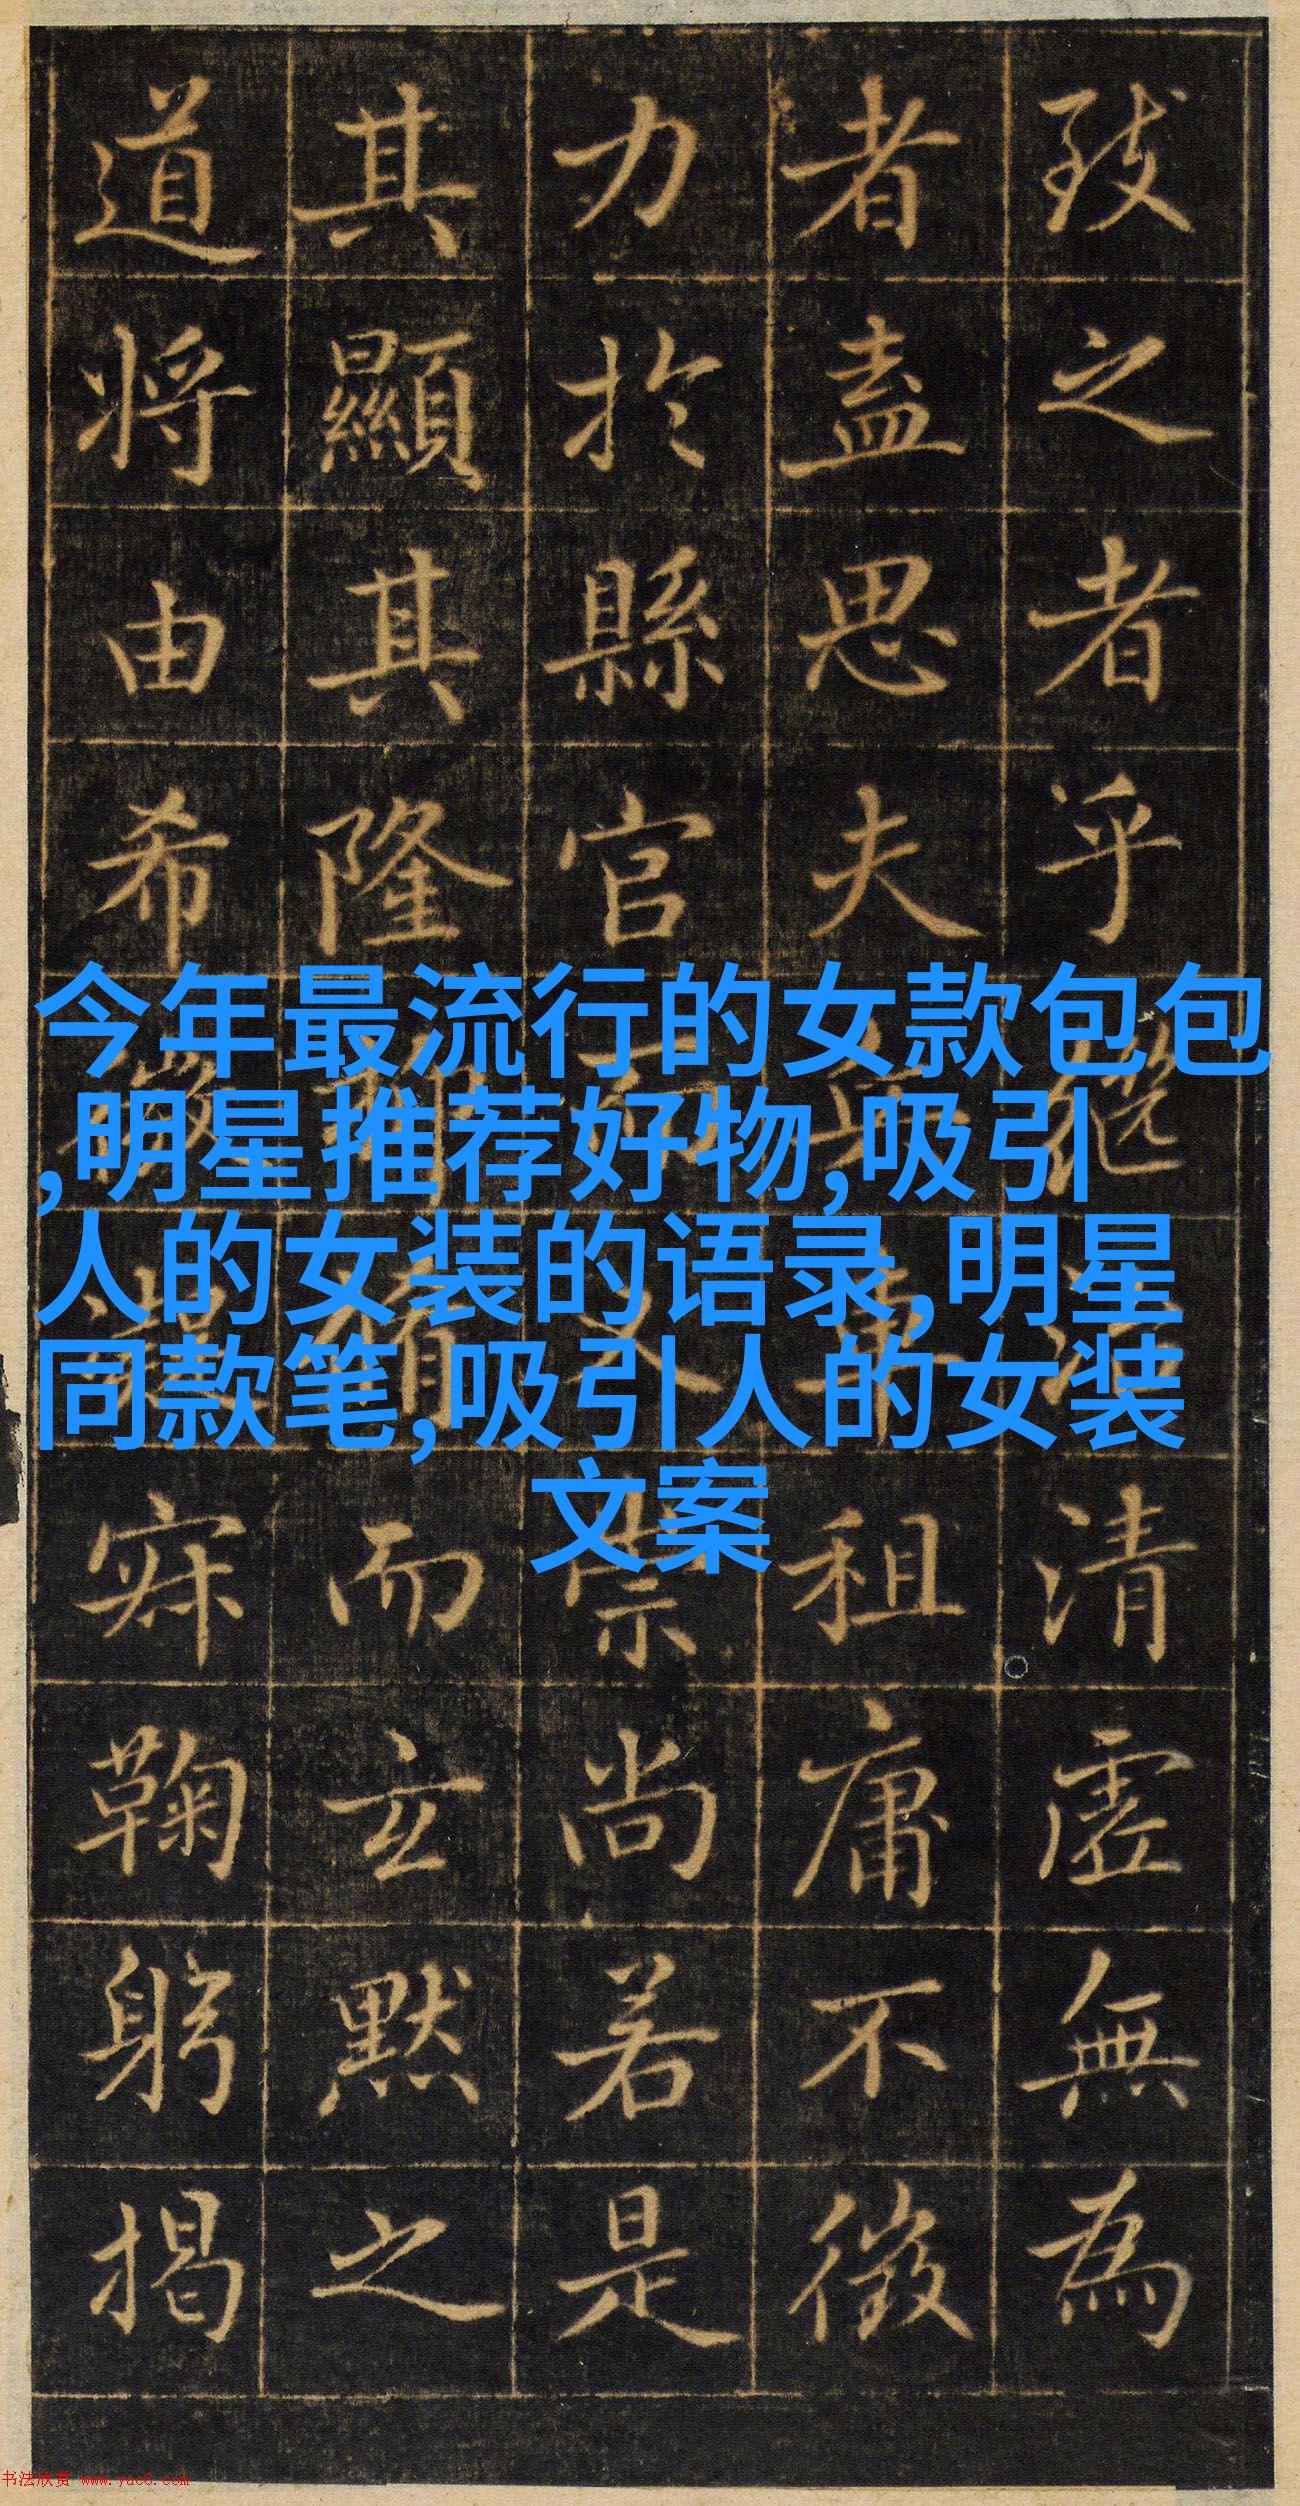 致之者乎清虛無為
者盡思夫租庸不徵
力於縣官崇尚若是
其顯其隆而玄默之
道將由希寂鞠躬揭
今年最流行的女款包包
,明星推荐好物,吸引
人的女装的语录,明星
同款笔,吸引人的女装
文案
书法欣赏 www.yac8.com